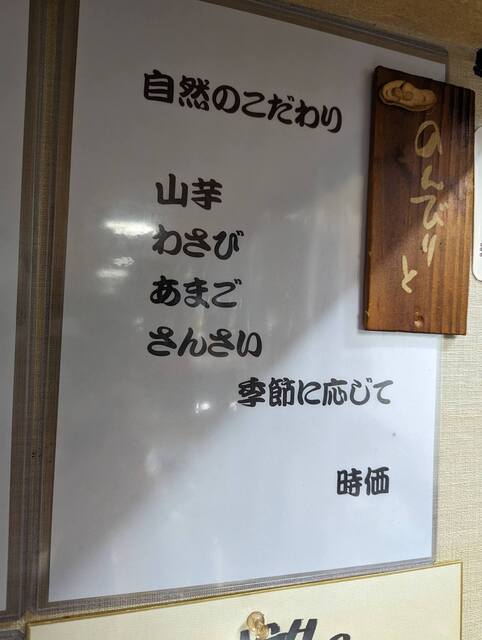 自然のこだわり
山芋
わさび
あまご
さんさい
季節に応じて
時価
のんびりと